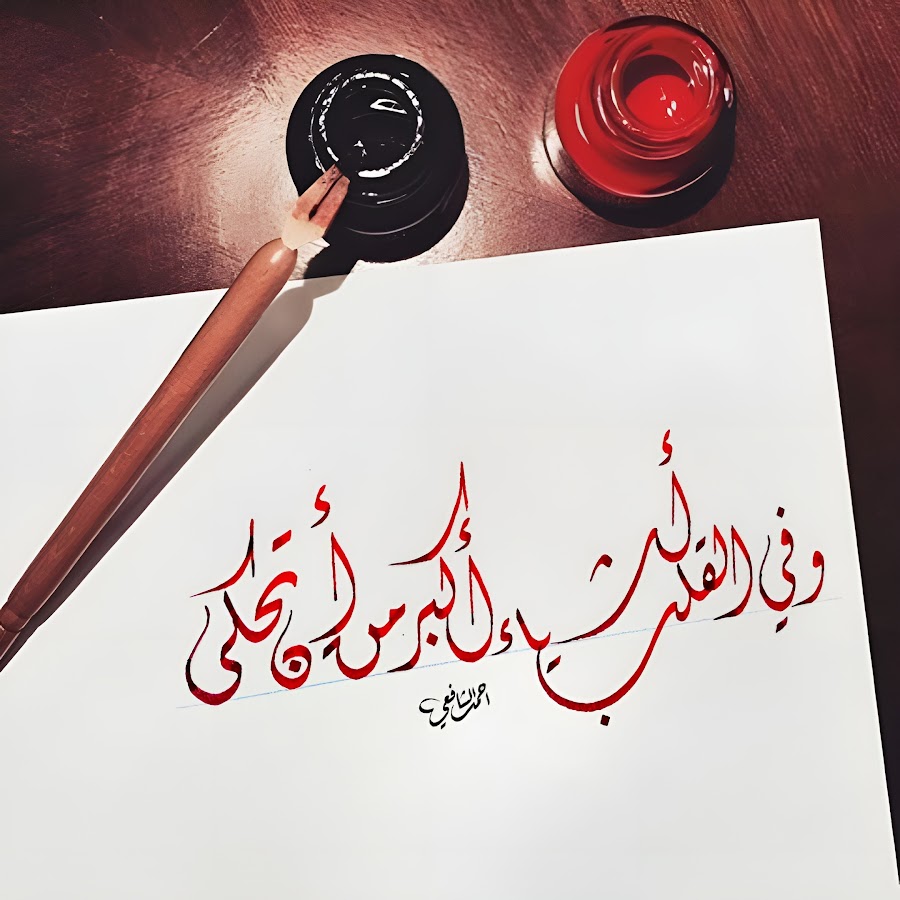 وفي القلب أشياء أكبر من أن تحكى
احمد الشافعي